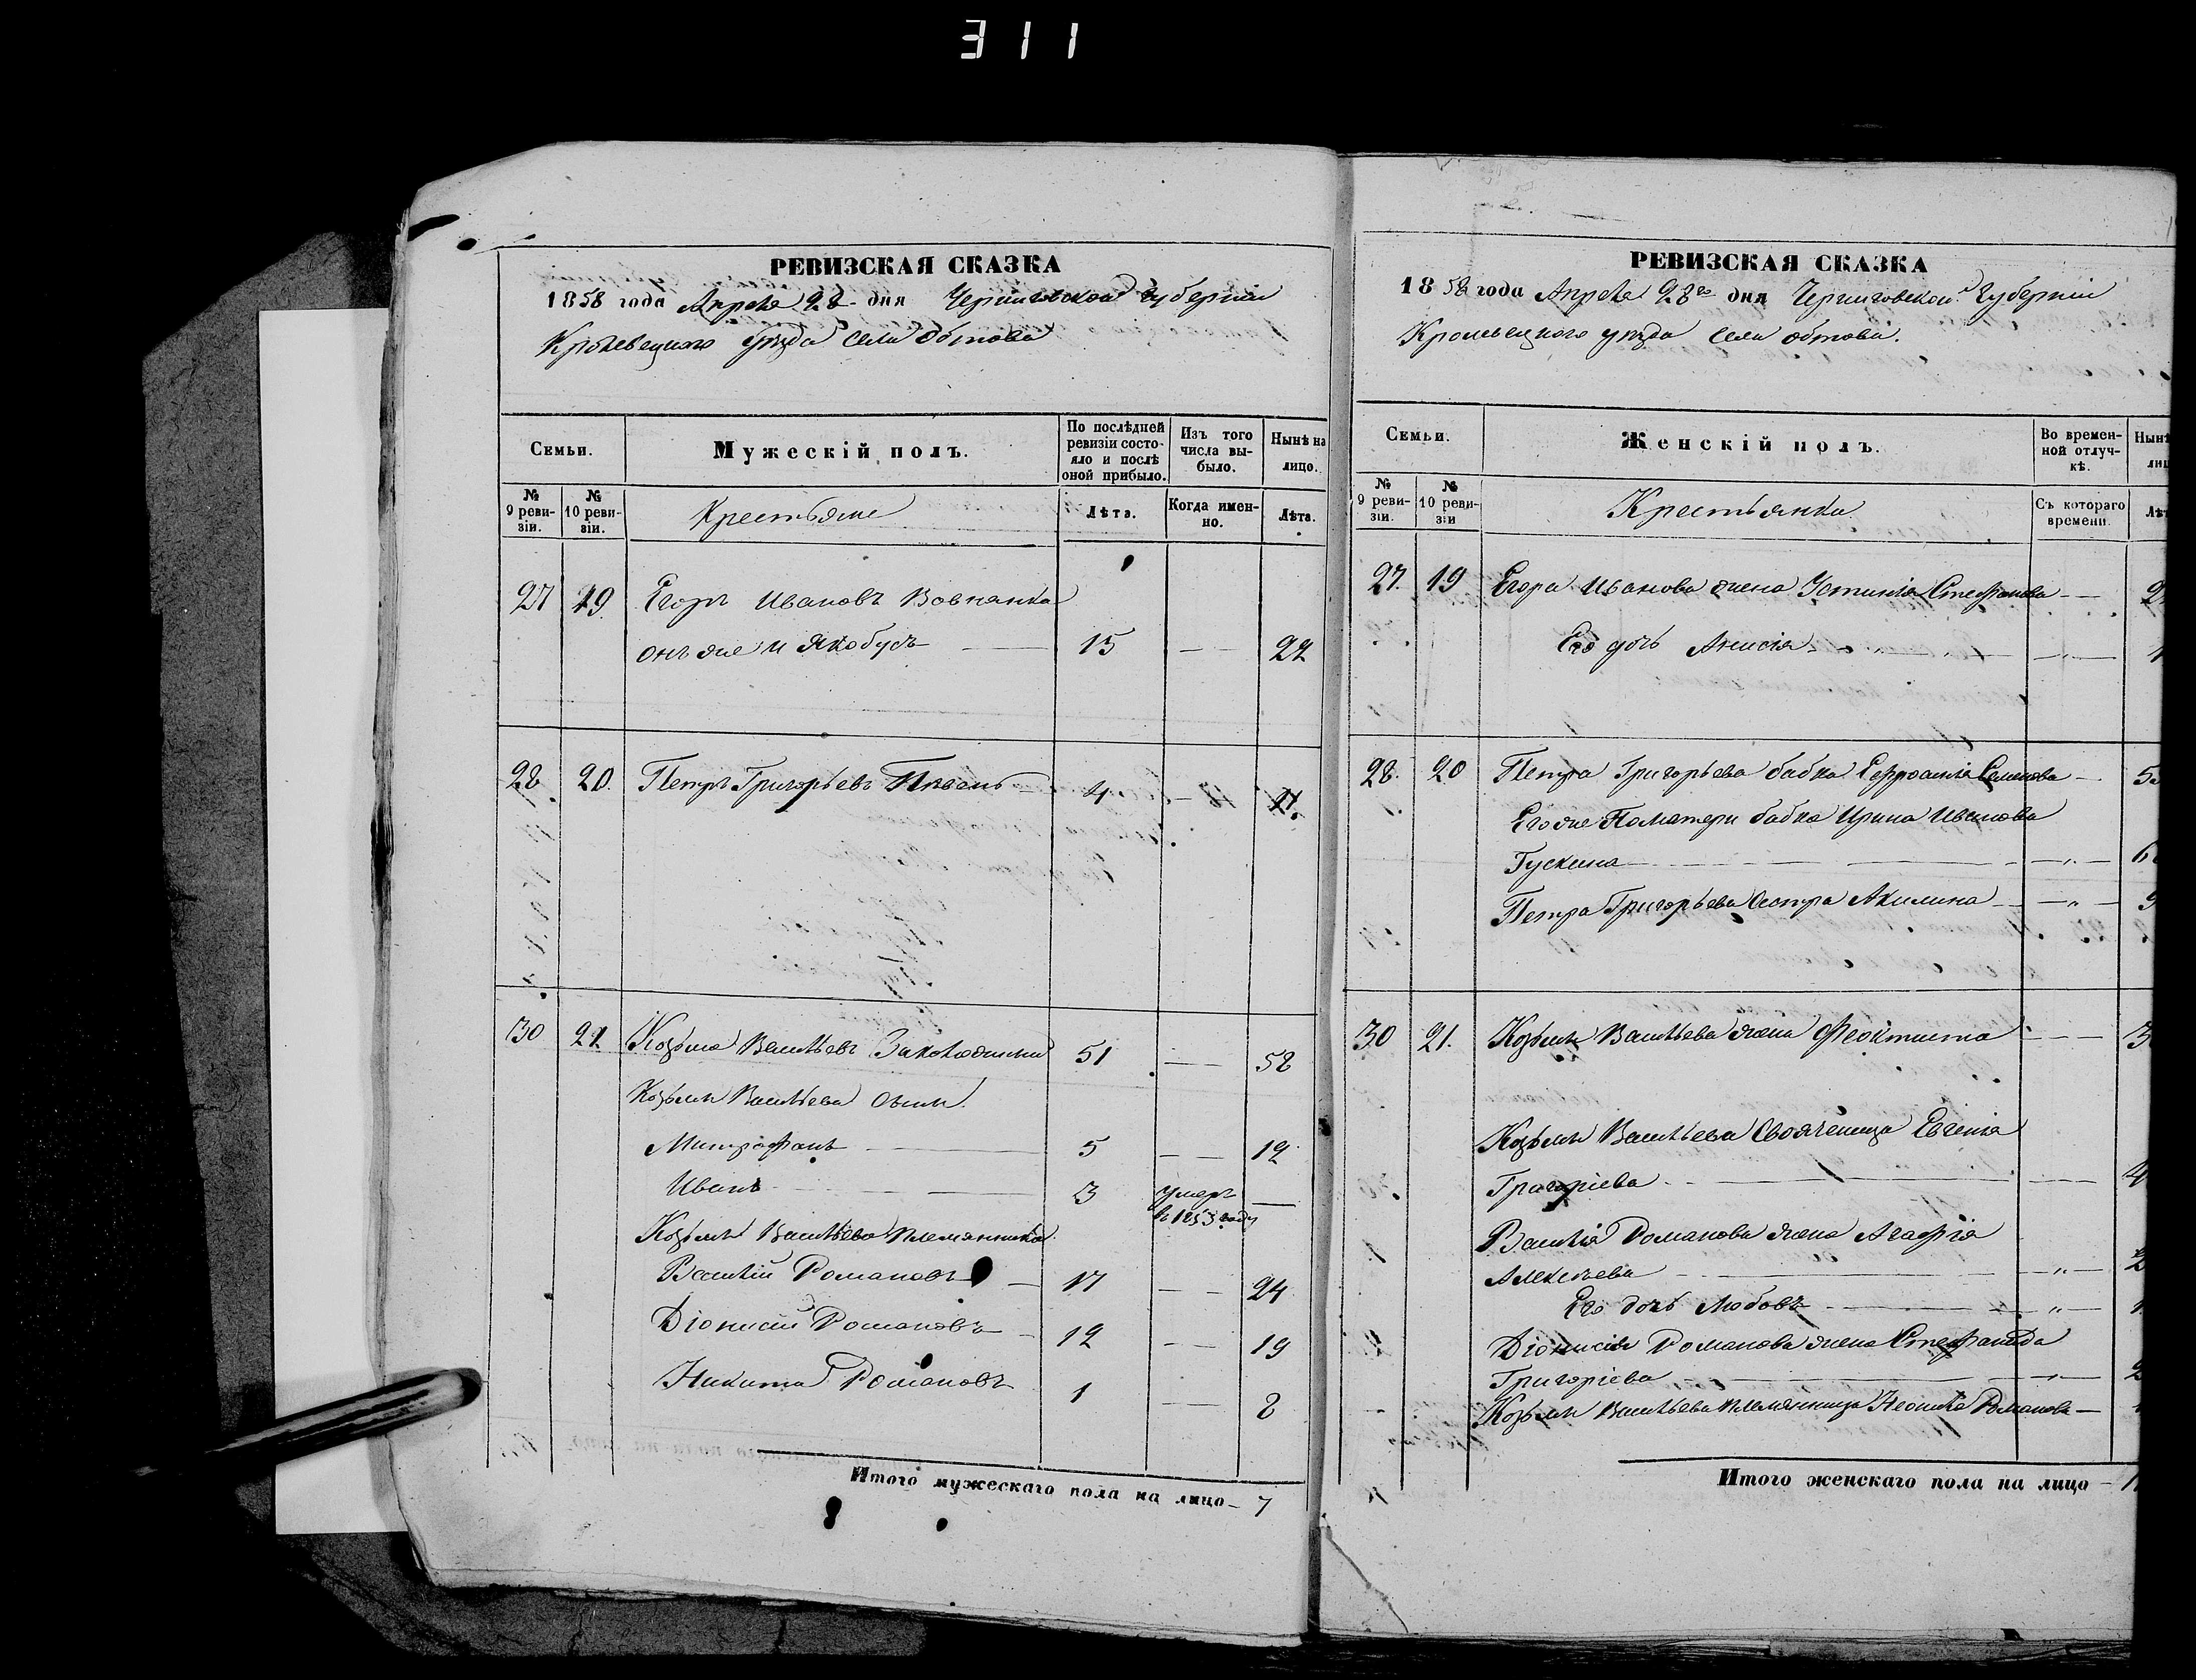 311
РЕВИЗСКАЯ СКАЗКА
1858 года Апреля 28 дня Черниговской губернии
Кролевецкого уѣзда села Обтова
Семьи.
Мужескій полъ.
По послѣдней ревизіи состояло и послѣ оной прибыло.
Изъ того числа выбыло.
Нынѣ на лицо.
№ 9 ревизіи.
№ 10 ревизіи.
Крестьяне
Лѣта.
Когда именно.
Лѣта.
27 19 Егоръ Ивановъ Вовнянка
онъ же и Якобусъ 15 22
28 20. Петръ Григорьевъ 4 11.
30 21 Козьма Васильевъ 51 58
Козьмы Васильева сыны
Митрофанъ 5 12
Иванъ 3 умеръ
въ 1853 году
Козьмы Васильева племянники
Василій Романовъ 17 24
Діонисій Романовъ 12 19
Никита Романовъ 1 8
Итого мужескаго пола на лицо - 7
РЕВИЗСКАЯ СКАЗКА
1858 года Апреля 28го дня Черниговской губерніи
Кролевецкого уѣзда села Обтова.
Семьи.
Женскій полъ.
Во временной отлучкѣ.
Нынѣ
№ 9 ревизіи.
№ 10 ревизіи
Крестьянки
Съ котораго времени.
27. 19 Егора Иванова жена Устинія Стефанова
Его дочь Анисія
28. 20 Петра Григорьева бабка Семенова
Его же по матери бабка Ирина Иванова
Гускина
Петра Григорьева сестра Акилина
30 21. Козьмы Васильева жена Феоктиста
Козьмы Васильева своячениця Евгенія
Григоріева
Василія Романова жена Агафія
Алексѣева
Его дочь Любовь
Діонисія Романова жена Стефанида
Григоріева
Козьмы Васильева племянница Романова
Итого женскаго пола на лицо